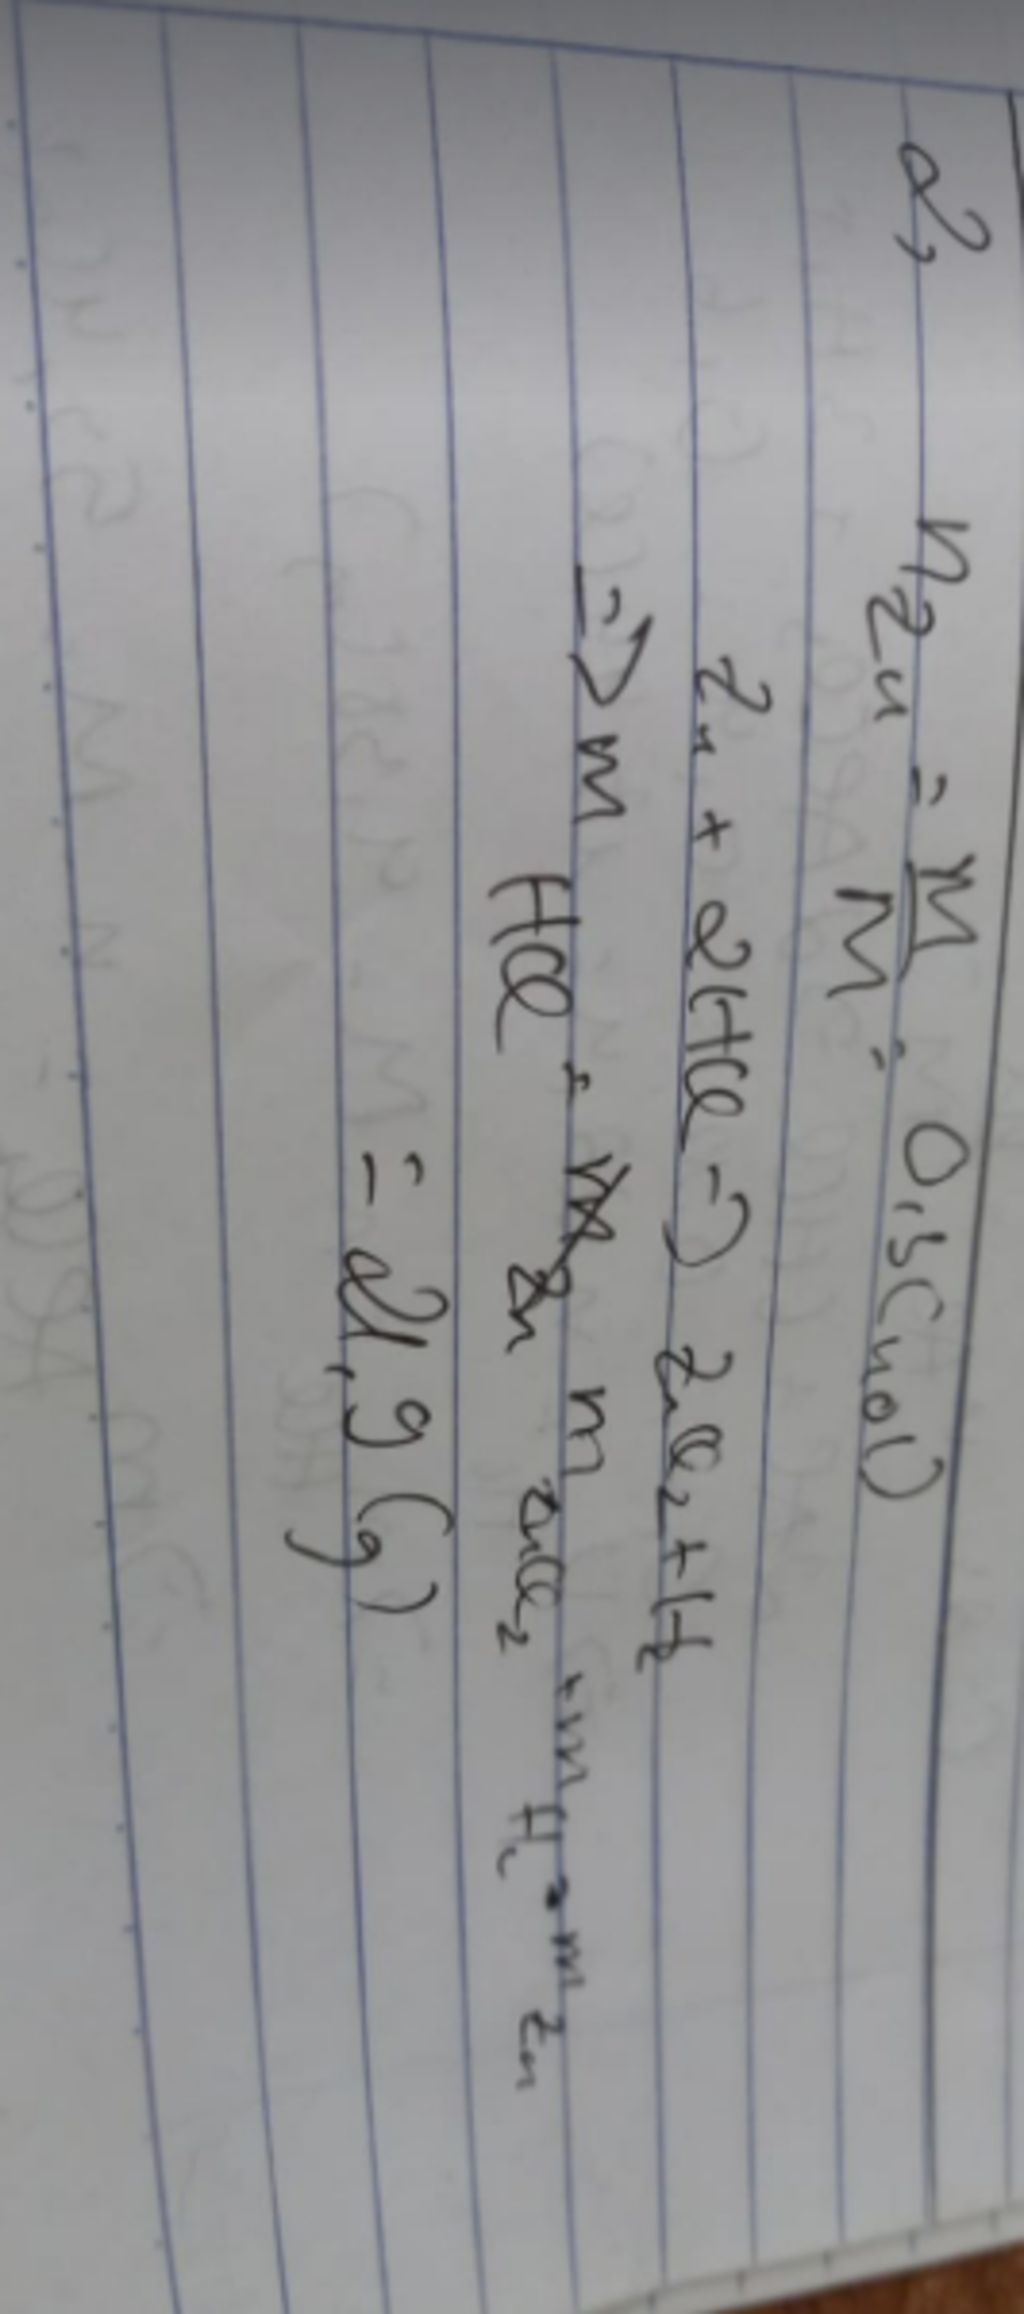 2,
n Zn = m/M = 0,3(mol)
Zn + 2HCl => ZnCl2 + H2
=> m HCl = m ZnCl2 + m H2 - m Zn
= 21,9 (g)